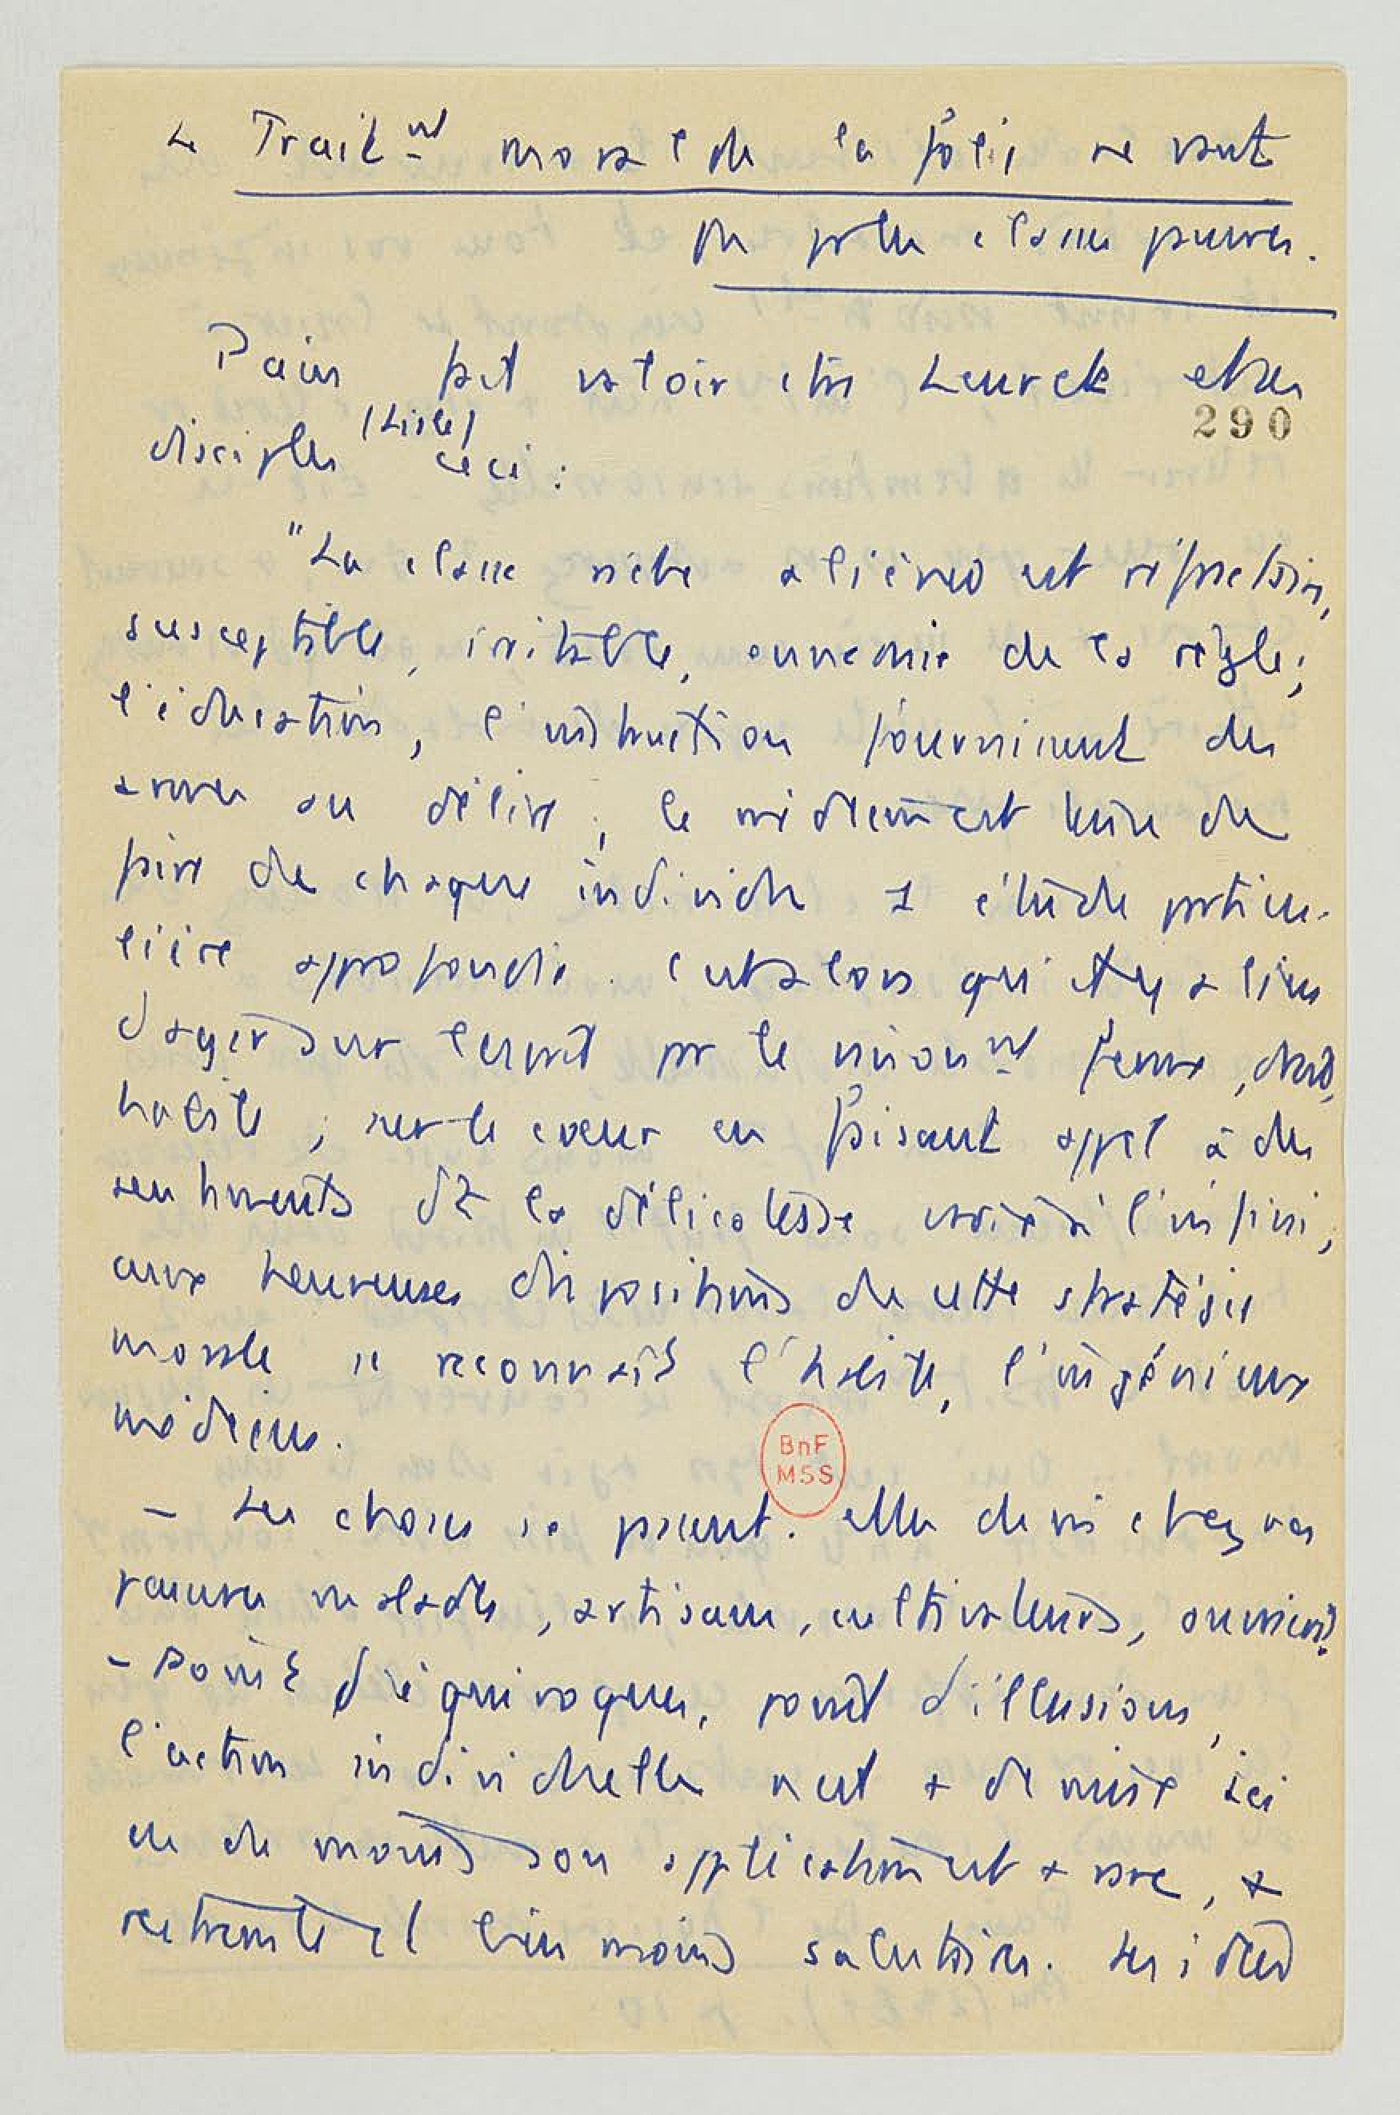 Le Trait^nt moral de la folie ne vaut
pas pr les classes pauvres.
Pain fait valoir chez Leuret et ses
290
disciples (Lisle) ceci :
"La classe riche aliénée est réfractaire,
susceptible, irritable, ennemie de la règle ;
l'éducation, l'instruction fournissent des
armes au délire ; le médecin est tenu de
faire de chaque individu 1 étude particu-
lière approfondie. C'est alors qu'il y a lieu
d'agir sur l'esprit par le raisonn^nt ferme, droit,
habile ; sur le cœur en faisant appel à des
sentiments dt la délicatesse varie à l'infini ;
aux heureuses dispositions de cette stratégie
morale se reconnaît l'habile, l'ingénieux
médecin.
– Les choses se passent elles de mê chez nos
pauvres malades, artisans, cultivateurs, ouvriers ?
– Point d'équivoques, point d'illusions,
l'action individuelle n'est + de mise ici
ou du moins son application est + rare, +
restreinte et bien moins salutaire. Les idées
BnF
MSS